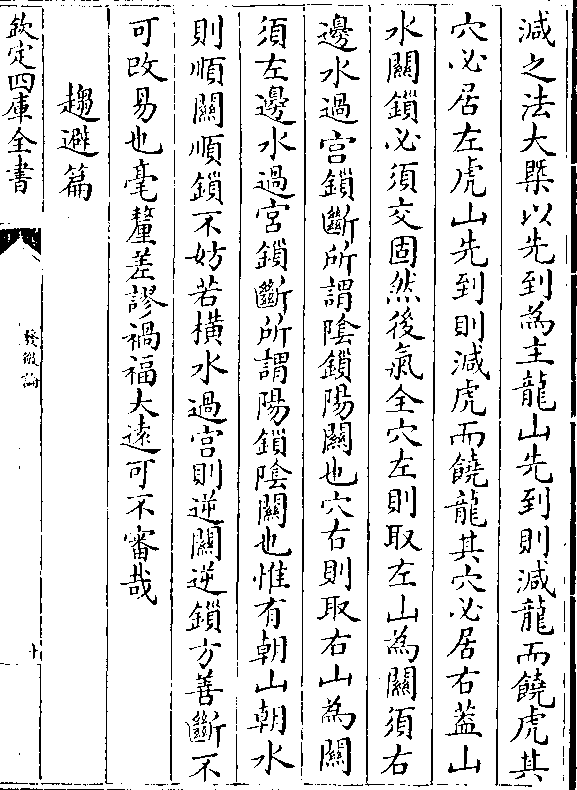 減之法大槩以先到為主龍山先到則減龍而饒虎其
穴必居左虎山先到則減虎而饒龍其穴必居右蓋山
水關鎖必須交固然後氣全穴左則取左山為關須右
邊水過宮鎖斷所謂陰鎖陽關也穴右則取右山為關
須左邊水過宮鎖斷所謂陽鎖陰關也惟有朝山朝水
則順關順鎖不妨若橫水過宮則逆關逆鎖方善斷不
可改易也毫釐差謬禍福大遠可不審哉
趨避篇
欽定四庫全書
發微論
十